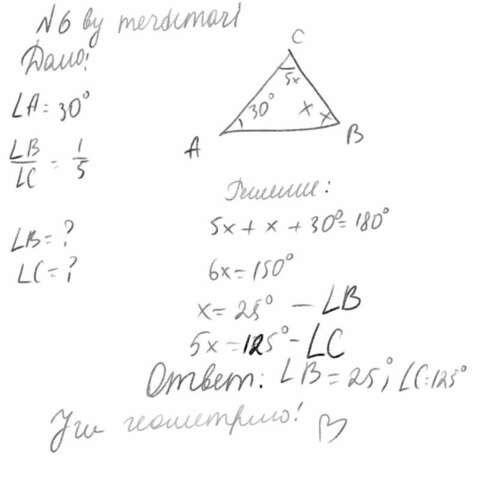 N6 by merdimari
Дано:
∠A = 30°
∠B/∠C = 1/5
∠B = ?
∠C = ?
C
5x
30°
x
x
A
B
Решение:
5x + x + 30° = 180°
6x = 150°
x = 25° - ∠B
5x = 125° - ∠C
Ответ: ∠B = 25°; ∠C = 125°
Учи геометрию!